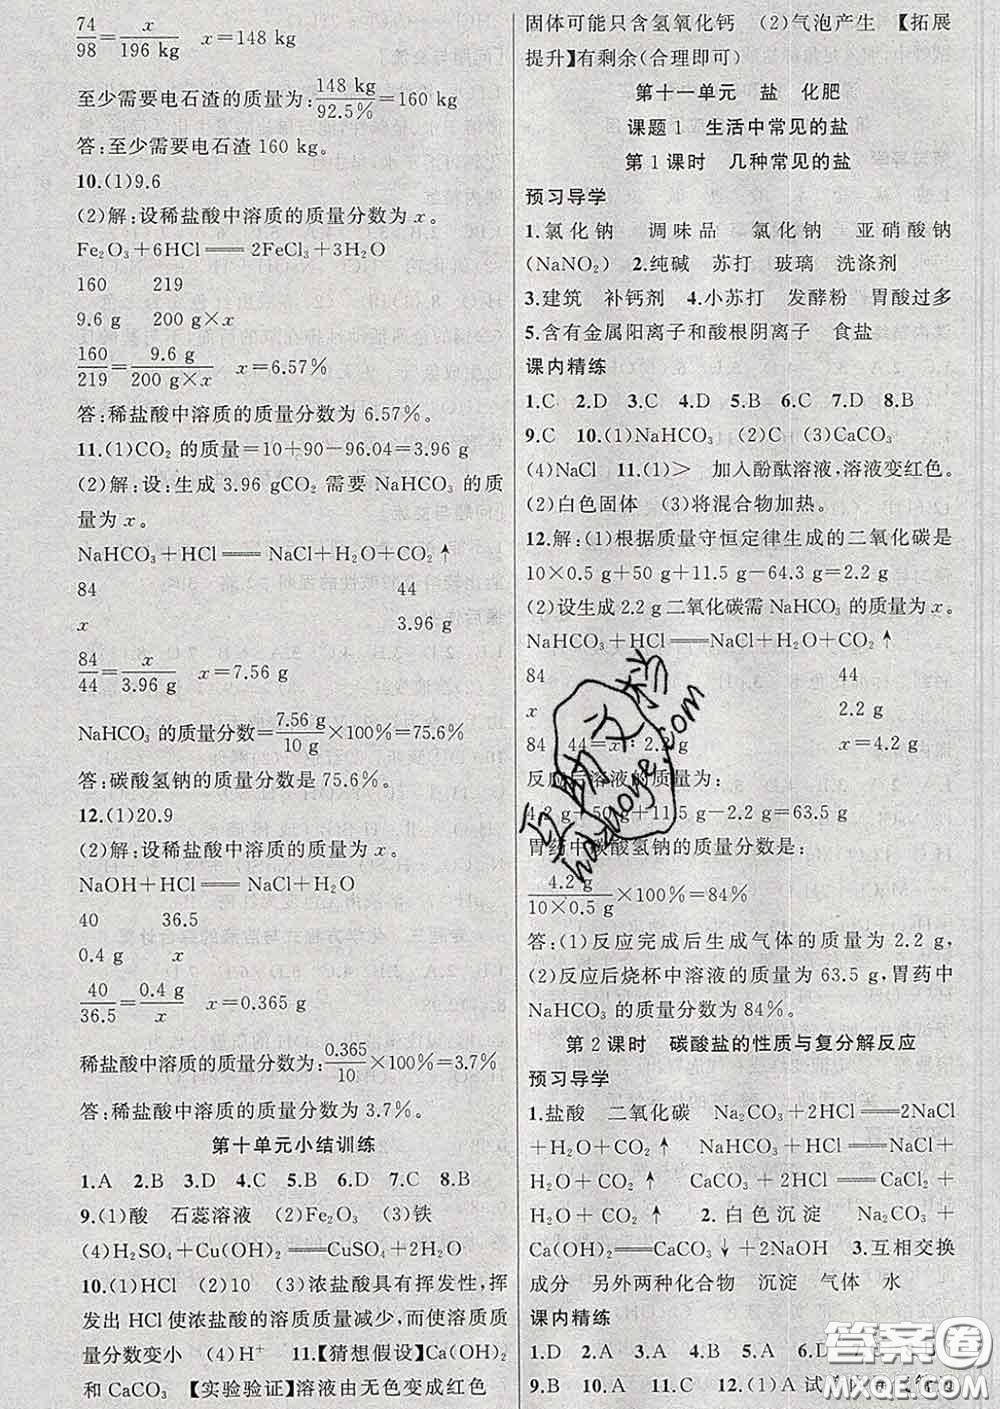 74/98 = x/196 kg  x=148 kg
至少需要电石渣的质量为:148 kg/92.5%=160 kg
答:至少需要电石渣160 kg。
10.(1)9.6
(2)解:设稀盐酸中溶质的质量分数为 x。
Fe₂O₃+6HCl══2FeCl₃+3H₂O
160  219
9.6 g  200 g×x
160/219=9.6 g/200 g×x  x=6.57%
答:稀盐酸中溶质的质量分数为6.57%。
11.(1)CO₂ 的质量=10+90-96.04=3.96 g
(2)解:设:生成 3.96 gCO₂ 需要 NaHCO₃ 的质
量为 x。
NaHCO₃+HCl══NaCl+H₂O+CO₂↑
84  44
x  3.96 g
84/44=x/3.96 g  x=7.56 g
NaHCO₃ 的质量分数=7.56 g/10 g×100%=75.6%
答:碳酸氢钠的质量分数是75.6%。
12.(1)20.9
(2)解:设稀盐酸中溶质的质量为 x。
NaOH+HCl══NaCl+H₂O
40  36.5
0.4 g  x
40/36.5=0.4 g/x  x=0.365 g
稀盐酸中溶质的质量分数为:0.365/10×100%=3.7%
答:稀盐酸中溶质的质量分数为3.7%。
第十单元小结训练
1.A 2.B 3.D 4.C 5.B 6.D 7.C 8.B
9.(1)酸 石蕊溶液 (2)Fe₂O₃ (3)铁
(4)H₂SO₄+Cu(OH)₂══CuSO₄+2H₂O
10.(1)HCl (2)10 (3)浓盐酸具有挥发性,挥
发出 HCl 使浓盐酸的溶质质量减少,而使溶质质
量分数变小 (4)H⁺ 11.【猜想假设】Ca(OH)₂
和CaCO₃ 【实验验证】溶液由无色变成红色
固体可能只含氢氧化钙 (2)气泡产生 【拓展
提升】有剩余(合理即可)
第十一单元 盐 化肥
课题1 生活中常见的盐
第1课时 几种常见的盐
预习导学
1.氯化钠 调味品 氯化钠 亚硝酸钠
(NaNO₂) 2.纯碱 苏打 玻璃 洗涤剂
3.建筑 补钙剂 4.小苏打 发酵粉 胃酸过多
5.含有金属阳离子和酸根阴离子 食盐
课内精练
1.C 2.D 3.C 4.D 5.B 6.C 7.D 8.B
9.C 10.(1)NaHCO₃ (2)C (3)CaCO₃
(4)NaCl 11.(1)> 加入酚酞溶液,溶液变红色。
(2)白色固体 (3)将混合物加热。
12.解:(1)根据质量守恒定律生成的二氧化碳是
10×0.5 g+50 g+11.5 g-64.3 g=2.2 g
(2)设生成2.2 g二氧化碳需NaHCO₃的质量为x。
NaHCO₃+HCl══NaCl+H₂O+CO₂↑
84  44
x  2.2 g
84∶44=x∶2.2 g  x=4.2 g
反应后溶液的质量为:
4.2 g+50 g+11.5 g-2.2 g=63.5 g
胃药中碳酸氢钠的质量分数是:
4.2 g/10×0.5 g×100%=84%
答:(1)反应完成后生成气体的质量为2.2 g,
(2)反应后烧杯中溶液的质量为63.5 g,胃药中
NaHCO₃的质量分数为84%。
第2课时 碳酸盐的性质与复分解反应
预习导学
1.盐酸 二氧化碳 Na₂CO₃+2HCl══2NaCl
+H₂O+CO₂↑ NaHCO₃+HCl══NaCl+
H₂O+CO₂↑ CaCO₃+2HCl══CaCl₂+
H₂O+CO₂↑ 2.白色沉淀 Na₂CO₃+
Ca(OH)₂══CaCO₃↓+2NaOH 3.互相交换
成分 另外两种化合物 沉淀 气体 水
课内精练
1.D 2.D 3.A 4.B 5.A
9.B 10.A 11.C 12.(1)A
互助文档
hdzuoye.com
答案圈
MXQE.COM